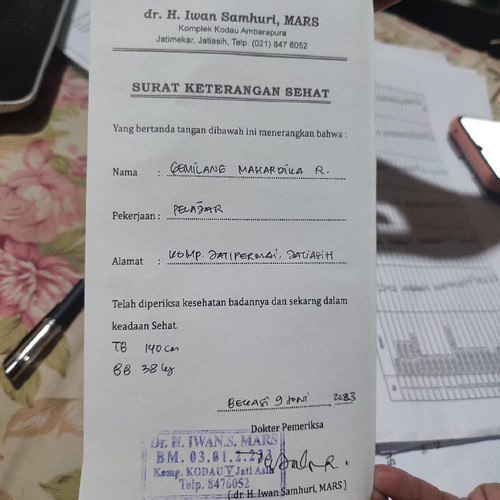 dr. H. Iwan Samhuri, MARS
Komplek Kodau Ambarapura
Jatimekar, Jatiasih, Telp. (021) 847 6052
SURAT KETERANGAN SEHAT
Yang bertanda tangan dibawah ini menerangkan bahwa :
Nama : GEMILANG MAHARDIKA R.
Pekerjaan : PELAJAR
Alamat : KOMP. JATIPERMAI, JATIASIH
Telah diperiksa kesehatan badannya dan sekarng dalam
keadaan Sehat.
TB 140 cm
BB 38 kg
BEKASI 9 JUNI 2023
Dokter Pemeriksa
Dr. H. IWAN.S, MARS
BM. 03.01.2.233
Komp. KODAU V Jati Asih
Telp. 8476052
( dr. H. Iwan Samhuri, MARS )